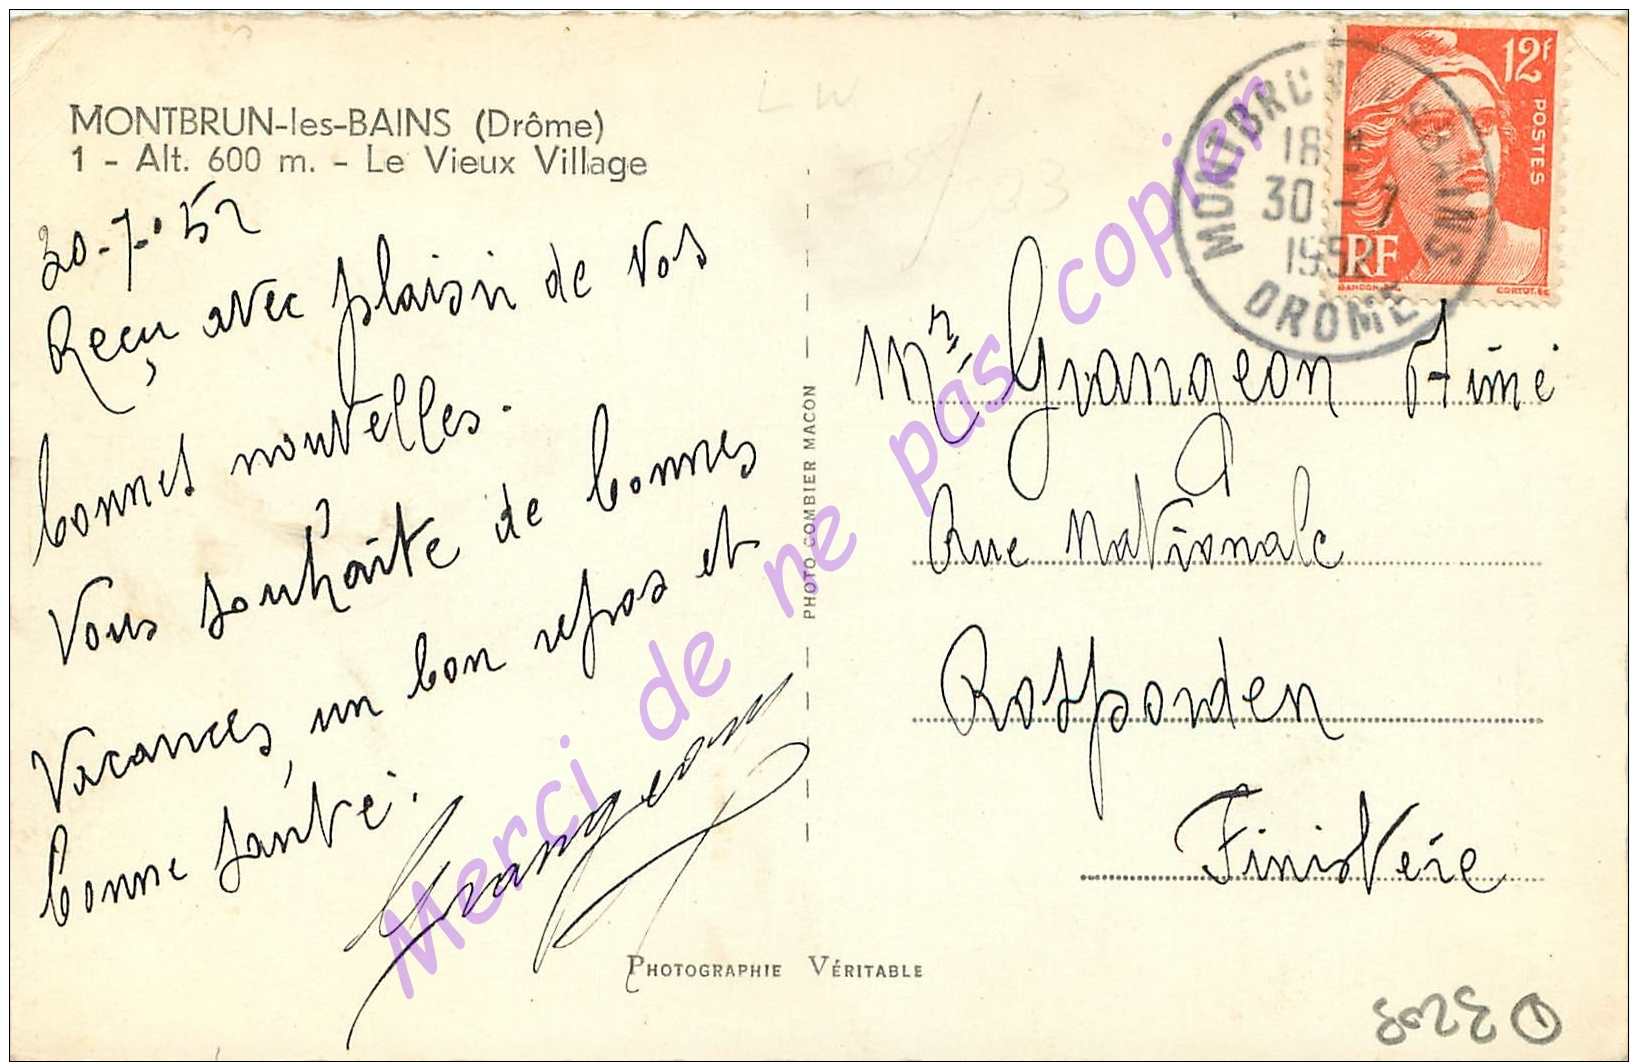 MONTBRUN-les-BAINS (Drôme)
1 - Alt. 600 m. - Le Vieux Village
30-7-52
Reçu avec plaisir de vos
bonnes nouvelles.
Vous souhaite de bonnes
vacances, un bon repos et
bonne santé.
Grangeon
PHOTO COMBIER MACON
PHOTOGRAPHIE VÉRITABLE
12F
POSTES
RF
GANDON
CORTOT.SC
MONTBRUN BAINS
18
30-7
1952
DROME
Mr Grangeon Aimé
Rue Nationale
Rosporden
Finistère
LW
Merci de ne pas copier